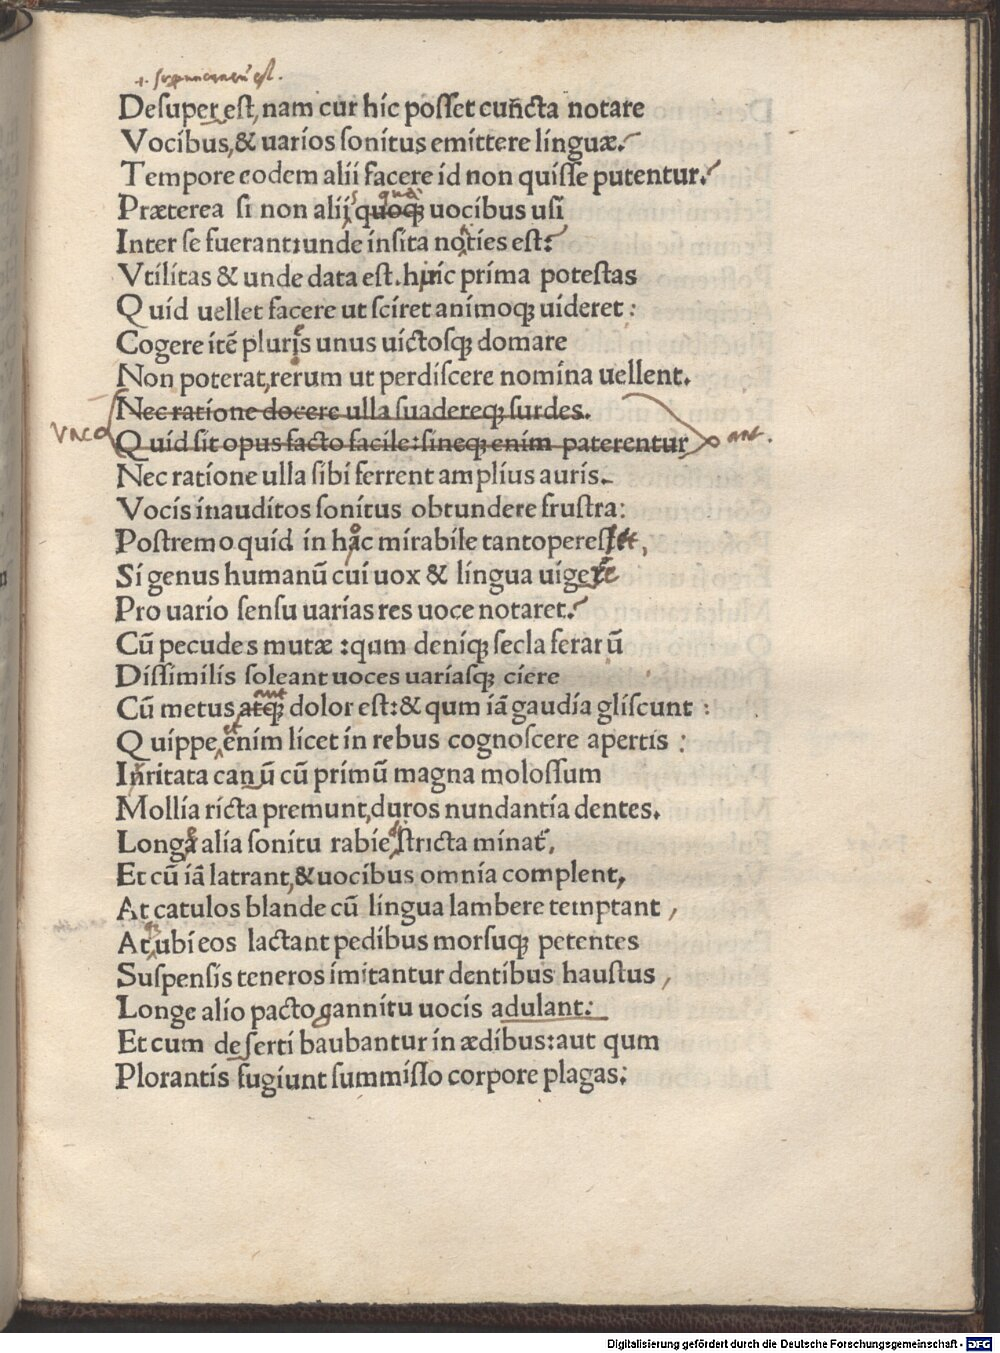 Desuper est, nam cur hic posset cuñcta notare
Vocibus, & uarios sonitus emittere linguæ.
Tempore eodem alii facere id non quisse putentur.
Præterea si non alii quoqȝ uocibus usi
Inter se fuerant: unde insita noties est:
Vtilitas & unde data est. huic prima potestas
Quid uellet facere ut sciret animoqȝ uideret:
Cogere itē pluris unus uictosqȝ domare
Non poterat, rerum ut perdiscere nomina uellent.
Nec ratione docere ulla suadereqȝ surdes.
vaca Quid sit opus facto facile: sineqȝ enim paterentur ant.
Nec ratione ulla sibi ferrent amplius auris.
Vocis inauditos sonitus obtundere frustra:
Postremo quid in hac mirabile tantopere st,
Si genus humanū cui uox & lingua uigere
Pro uario sensu uarias res uoce notaret.
Cū pecudes mutæ: qum deniqȝ secla ferarū
Dissimilis soleant uoces uariasqȝ ciere
aut
Cū metus atqȝ dolor est: & qum iā gaudia gliscunt:
et
Quippe enim licet in rebus cognoscere apertis:
Inritata canū cū primū magna molossum
Mollia ricta premunt, duros nundantia dentes.
Longa alia sonitu rabie stricta minat᷑.
Et cū iā latrant, & uocibus omnia complent,
At catulos blande cū lingua lambere temptant,
At ubi eos lactant pedibus morsuqȝ petentes
Suspensis teneros imitantur dentibus haustus,
Longe alio pacto gannitu uocis adulant:
Et cum deserti baubantur in ædibus: aut qum
Plorantis fugiunt summisso corpore plagas:
Digitalisierung gefördert durch die Deutsche Forschungsgemeinschaft - DFG